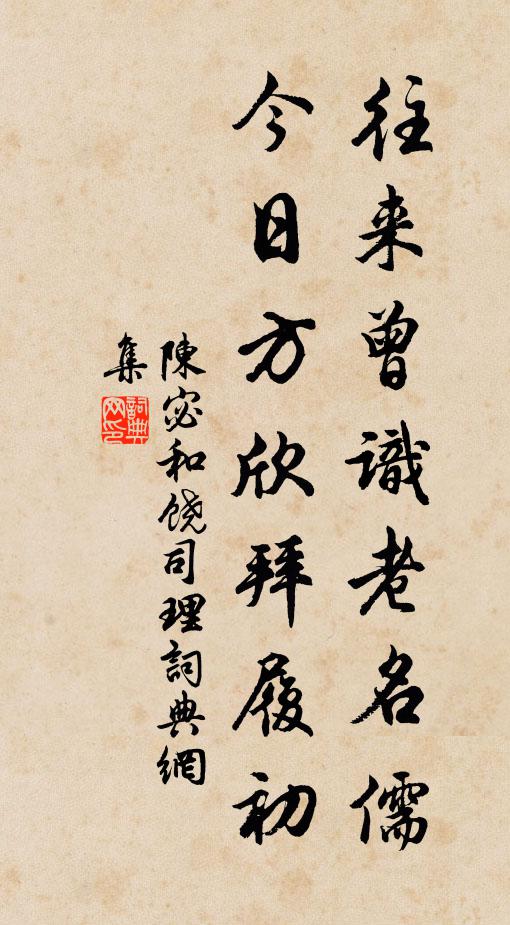 往来曾識老名儒
今日方欣拜履初
陳宓和饶司理詞典網
集
詞典网印